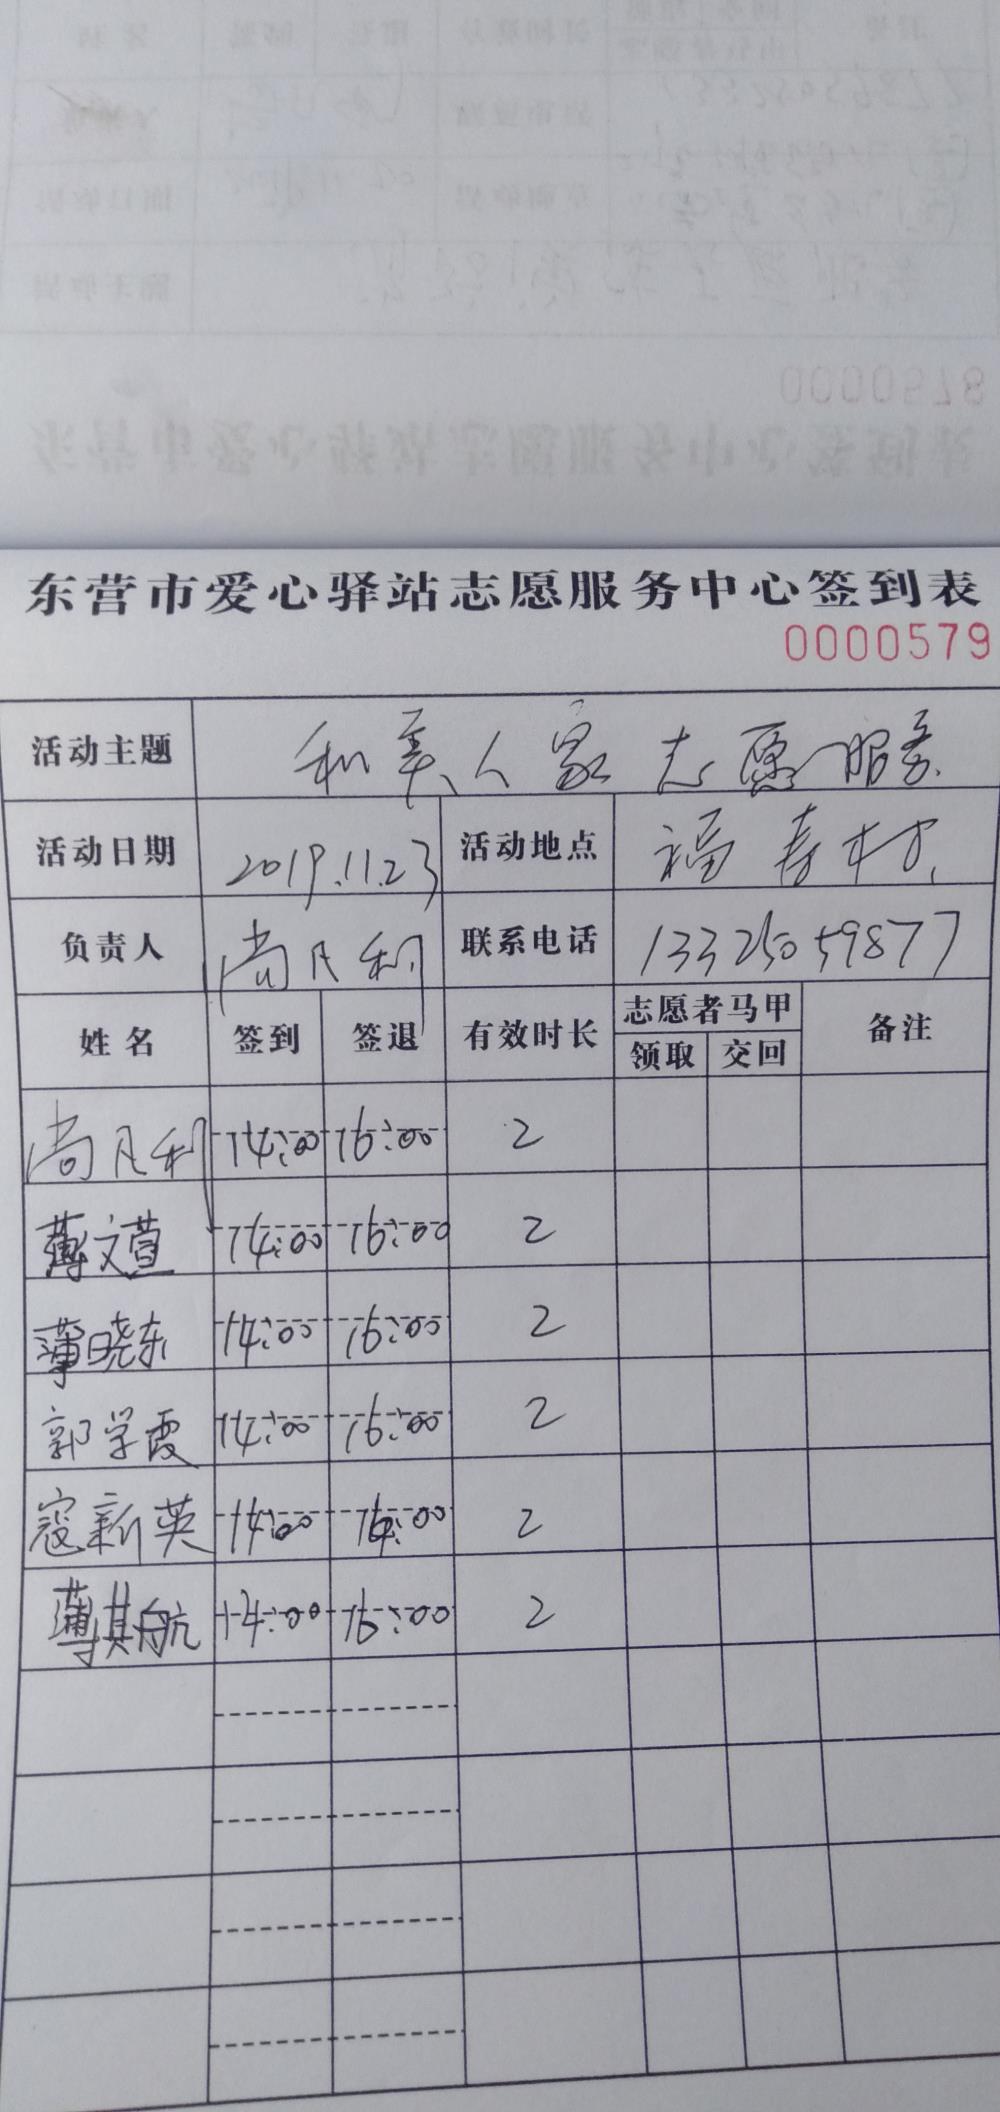 东营市爱心驿站志愿服务中心签到表
0000579
活动主题 和美人家志愿服务
活动日期 2019.11.23 活动地点 福寿村
负责人 尚凡利 联系电话 13325059877
姓名 签到 签退 有效时长 志愿者马甲 备注
领取 交回
尚凡利 14:00 16:00 2
薄文萱 14:00 16:00 2
薄晓东 14:00 16:00 2
郭学霞 14:00 16:00 2
寇新英 14:00 16:00 2
薄其航 14:00 16:00 2